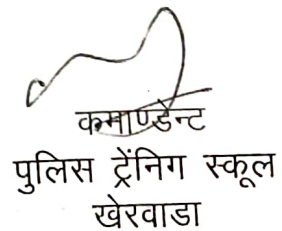 कमाण्डेन्ट
पुलिस ट्रेंनिग स्कूल
खेरवाडा